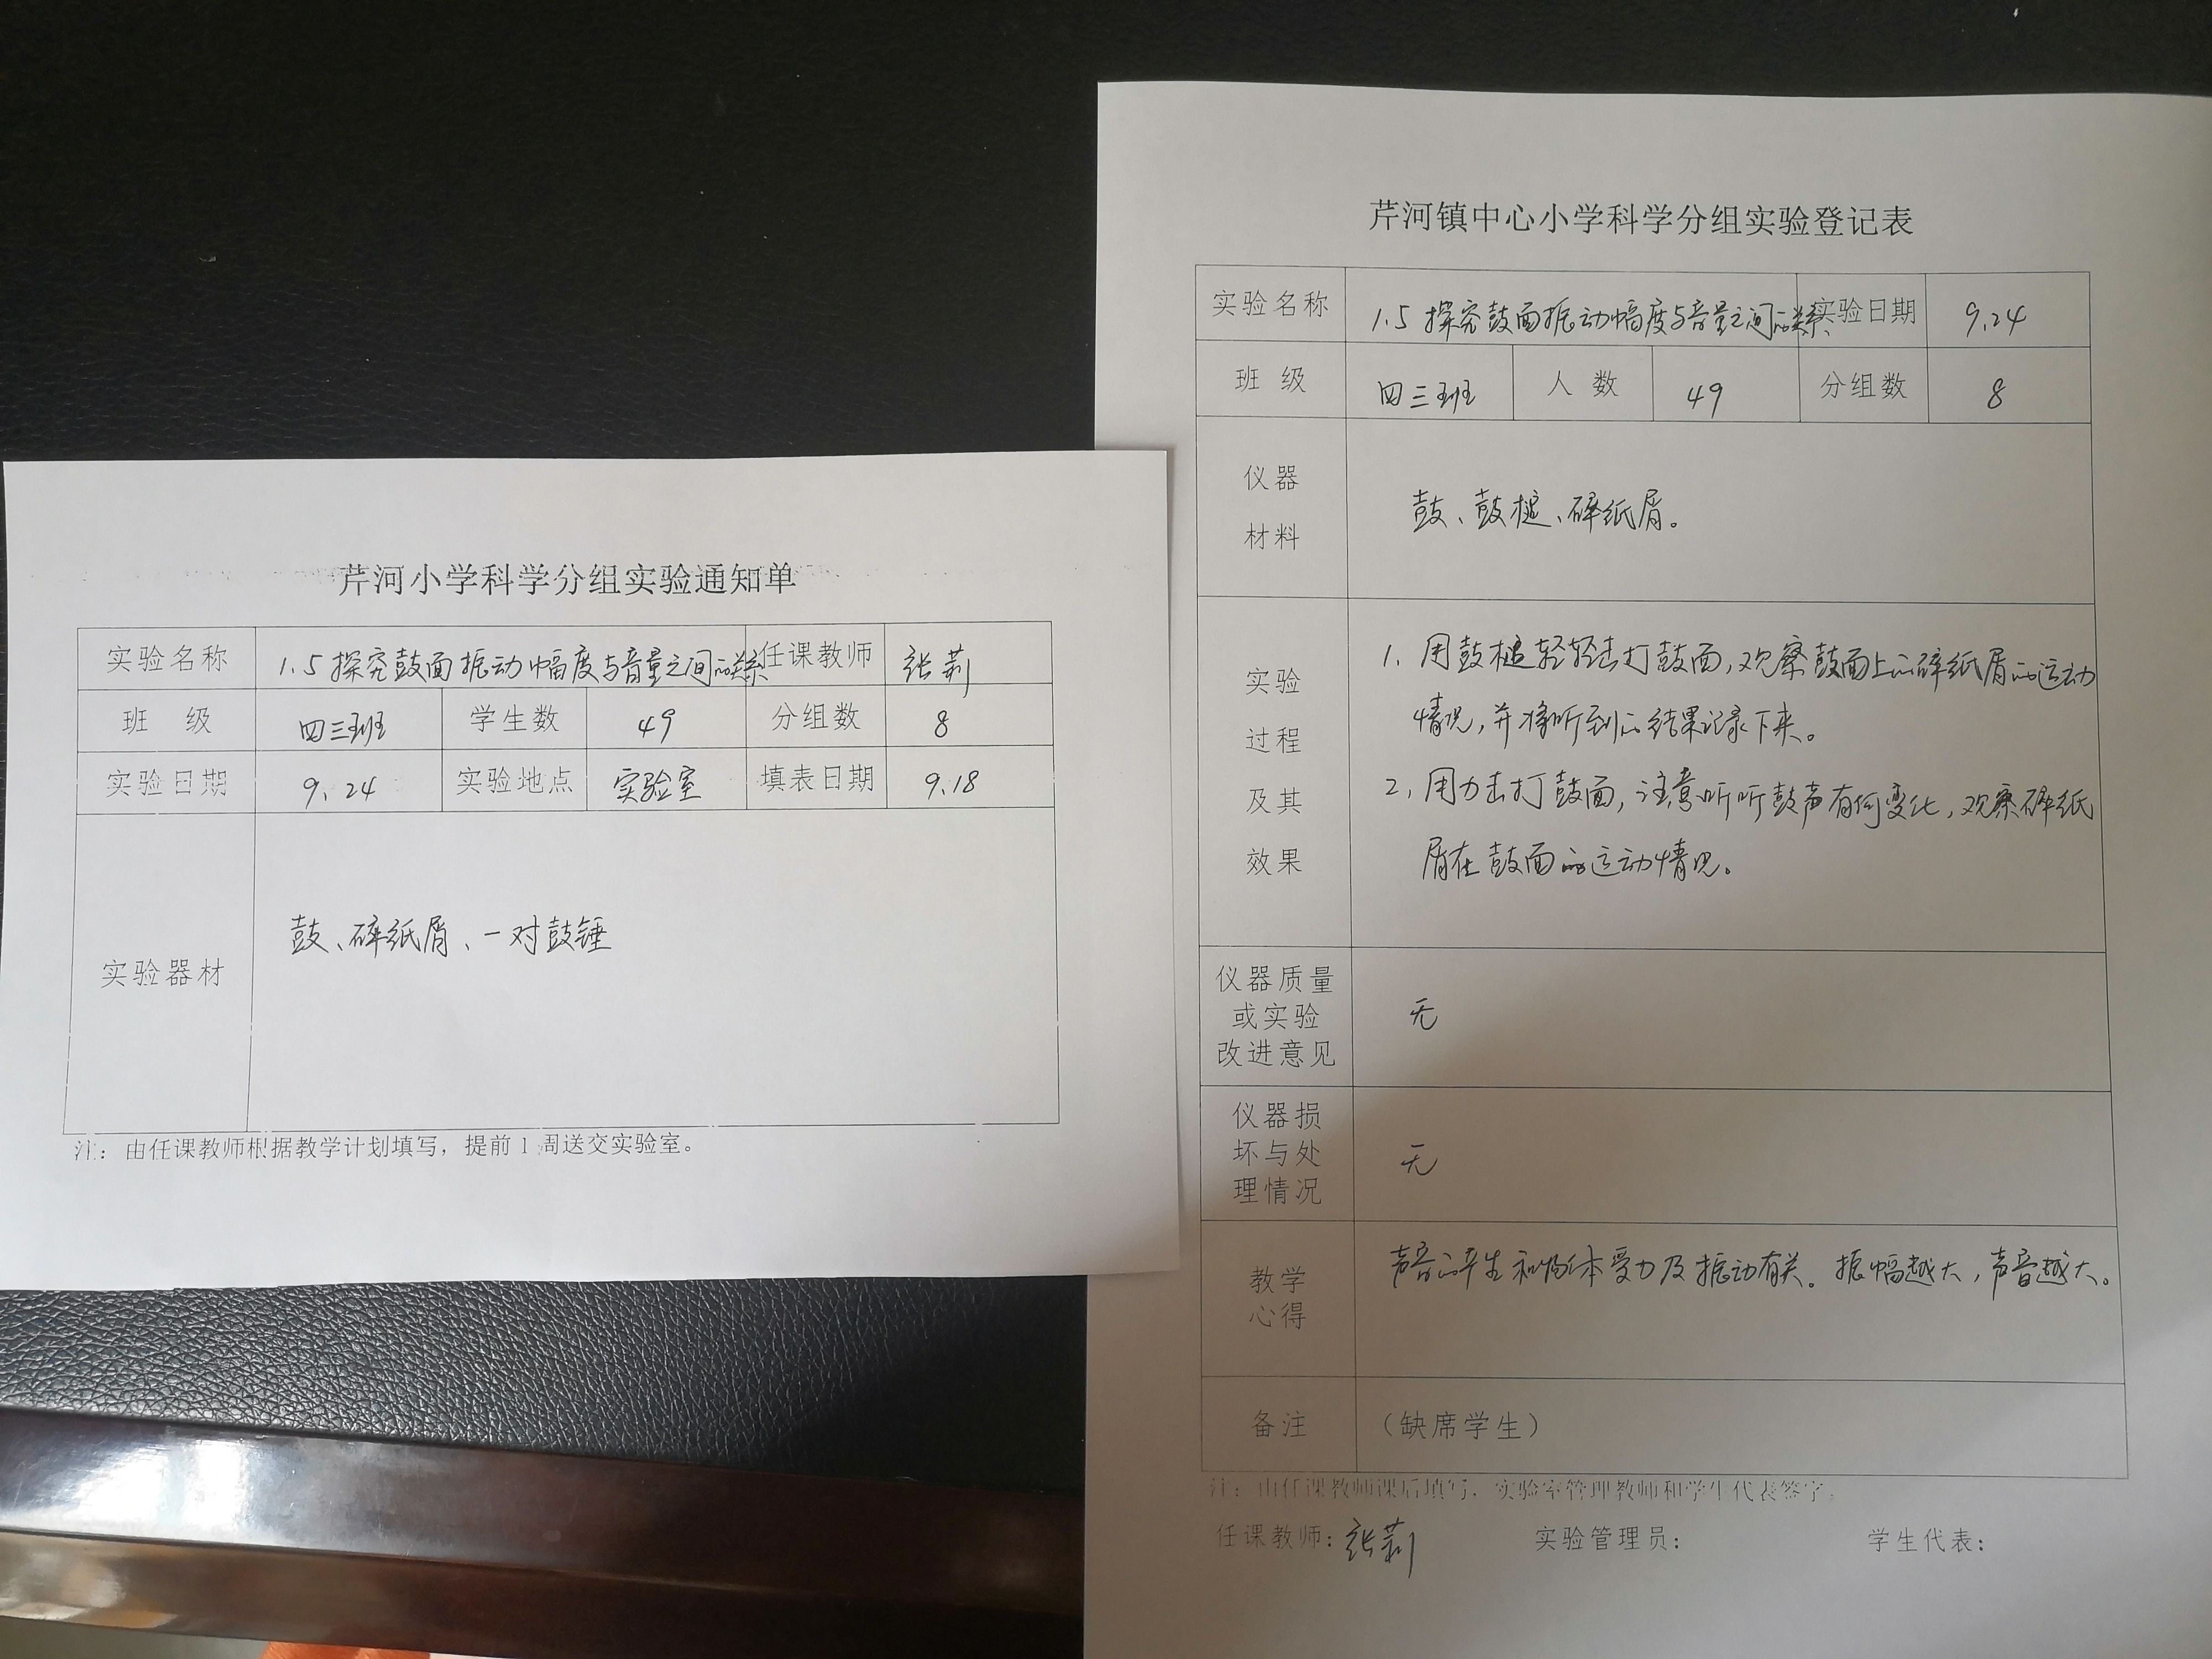 芹河小学科学分组实验通知单
实验名称 1.5探究鼓面振动幅度与音量之间的关系 任课教师 张莉
班 级 四三班 学生数 49 分组数 8
实验日期 9.24 实验地点 实验室 填表日期 9.18
实验器材 鼓、碎纸屑、一对鼓锤
注：由任课教师根据教学计划填写，提前1周送交实验室。
芹河镇中心小学科学分组实验登记表
实验名称 1.5探究鼓面振动幅度与音量之间的关系 实验日期 9.24
班 级 四三班 人 数 49 分组数 8
仪器
材料
鼓、鼓槌、碎纸屑。
实验
过程
及其
效果
1、用鼓槌轻轻击打鼓面，观察鼓面上的碎纸屑的运动
情况，并将听到的结果记录下来。
2、用力击打鼓面，注意听听鼓声有何变化，观察碎纸
屑在鼓面的运动情况。
仪器质量
或实验
改进意见
无
仪器损
坏与处
理情况
无
教学
心得
声音的产生和物体受力及振动有关。振幅越大，声音越大。
备注 （缺席学生）
注：由任课教师课后填写，实验室管理教师和学生代表签字。
任课教师：张莉 实验管理员： 学生代表：